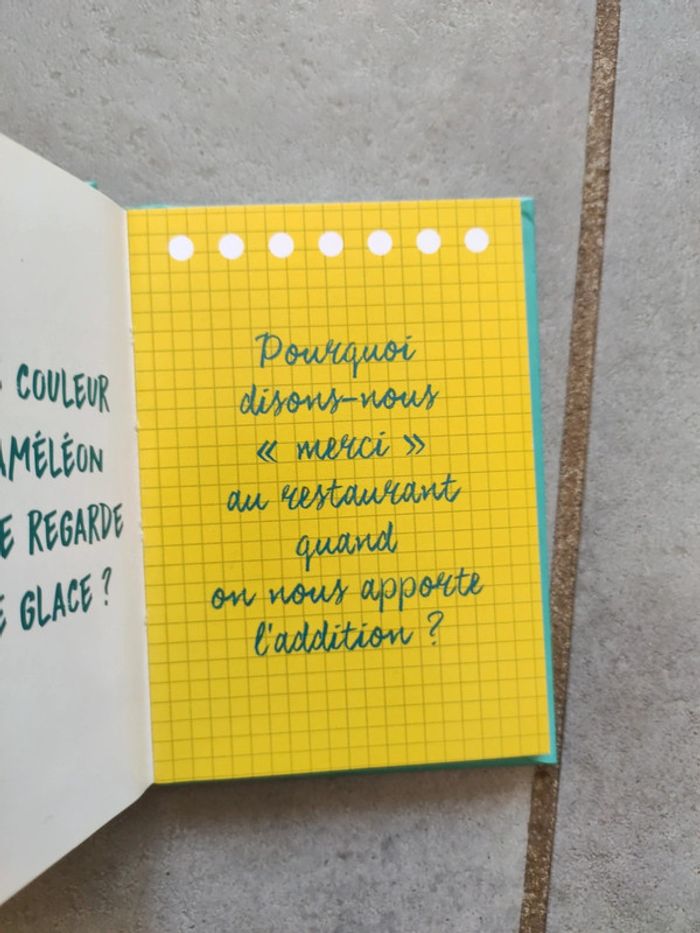 COULEUR
REGARDE
GLACE ?
Pourquoi
disons-nous
« merci »
au restaurant
quand
on nous apporte
l'addition ?